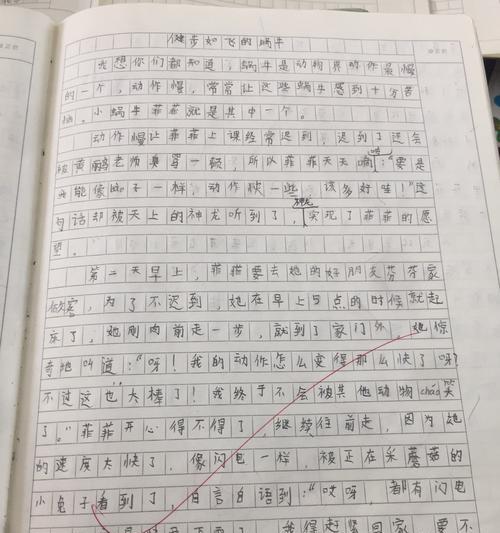 健步如飞的蜗牛
我想你们都知道，蜗牛是动物界动作最慢
的一个，动作慢，常常让这些蜗牛感到十分苦
恼。小蜗牛菲菲就是其中一个。
动作慢让菲菲上课经常迟到，迟到了还会
被黄鹂老师臭骂一顿，所以菲菲天天嘀咕："要是
我能像豹子一样，动作快一些，该多好哇！"这
句话却被天上的神龙听到了，神龙实现了菲菲的愿
望。
第二天早上，菲菲要去她的好朋友芬芬家
做客，为了不迟到，她在早上5点的时候就起
床了，她刚向前走一步，就到了家门外。她惊
奇地叫道："呀！我的动作怎么变得那么快了呀？
不过这也太棒了！我终于不会被其他动物chao笑
了。"菲菲开心得不得了，继续往前走，因为她
的速度大快了，像闪电一样，被正在采蘑菇的
小兔子看到了，自言自语到："哎呀，都有闪电
我得赶紧回家，要不